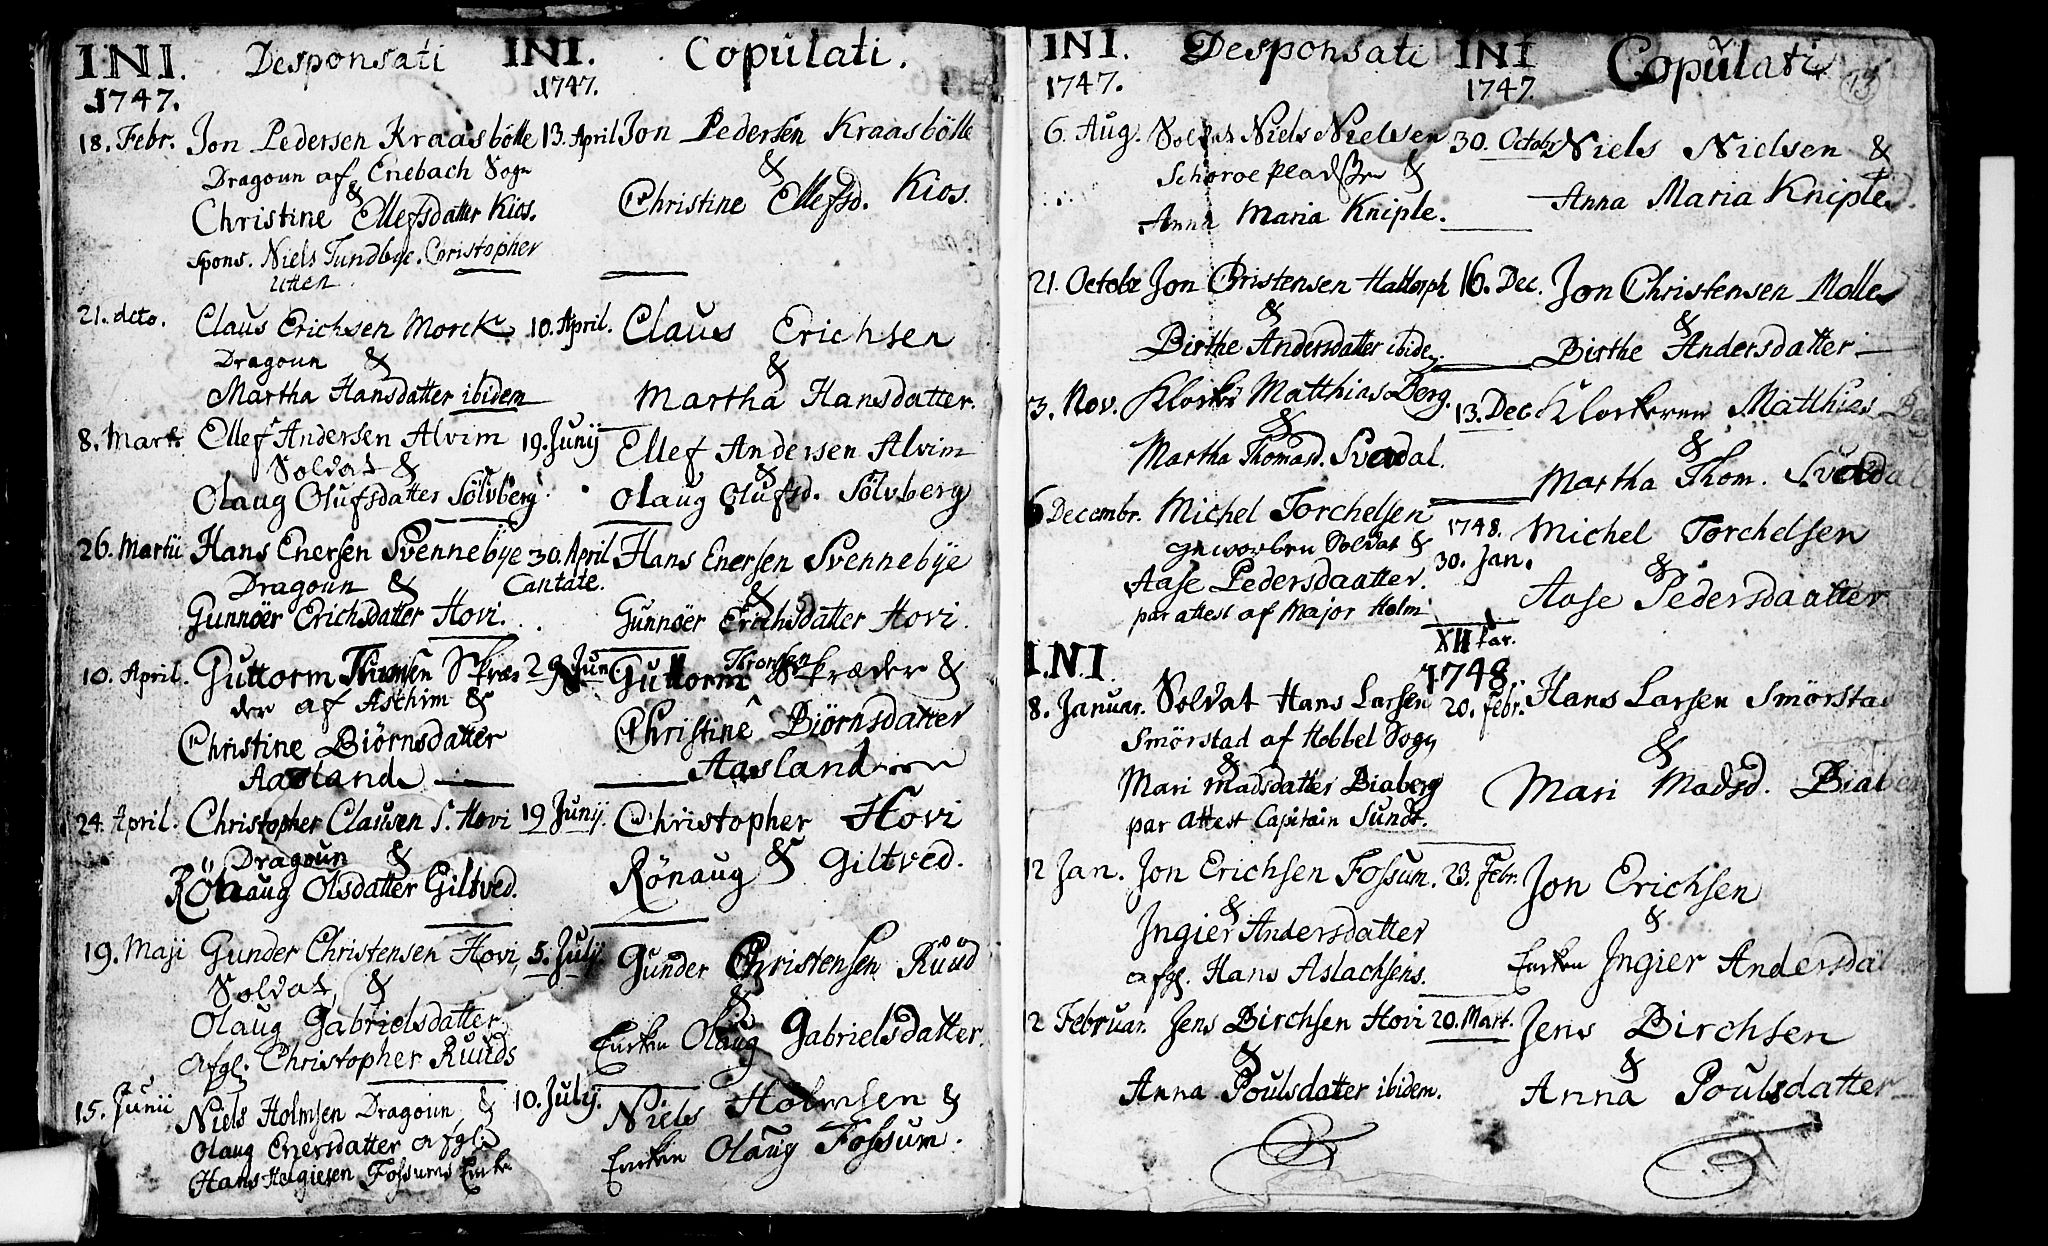 INI. Desponsati
1747.
18. Febr. Jon Pedersen Kraasbölle
Dragoun af Enebach Sogn
&
Christine Ellefsdatter Kios.
spons. Niels Tundbye. Christopher
Utten.
21. dcto. Claus Erichsen Morck
Dragoun &
Martha Hansdatter ibidem
8. Marti Ellef Andersen Alvim
Soldat &
Olaug Olufsdatter Sölvberg.
26. Martii Hans Enersen Svennebÿe
Dragoun &
Gunnöer Erichsdatter Hovi.
10. April. Guttorm Thronsen Skræ
der af Aschim &
Christine Biörnsdatter
Aasland
24. April. Christopher Clausen S. Hovi
Dragoun &
Rönaug Olsdatter Giltved.
19. Maji Gunder Christensen Hovi,
Soldat, &
Olaug Gabrielsdatter
afgl. Christopher Ruuds
15. Junii Niels Holmsen Dragoun, &
Olaug Enersdatter afgl:
Hans Helgiesen Fossums Enke
INI. Copulati.
1747.
13. April Jon Pedersen Kraasbölle
&
Christine Ellefsd. Kios.
10. April. Claus Erichsen
&
Martha Hansdatter.
19. Junij Ellef Andersen Alvim
&
Olaug Olufsd. Sölvberg
30. April Hans Enersen Svennebÿe
Cantate. &
Gunnöer Erichsdatter Hovi.
29. Jun. Guttorm Thronsen Skræder &
Christine Biörnsdatter
Aasland
19 Junij. Christopher Hovi
&
Rönaug Giltved.
5. Julij Gunder Christensen Ruud
&
Encken Olaug Gabrielsdatter.
10. Julij. Niels Holmsen &
Encken Olaug Fossum.
INI. Desponsati
1747.
6. Aug. Soldat Niels Nielsen
&
Anna Maria Kniple.
21. Octobr Jon Christensen
&
Birthe Andersdatter ibidem
3. Nov. Klocker Matthias Berg.
&
Martha Thomasd. Svaddal.
6 Decembr. Michel Torchelsen
geworben Soldat &
Aase Pedersdaatter.
par attest af Major Holm
I.N.I.
1748.
8. Januar. Soldat Hans Larsen
Smörstad af Hobbel Sogn
&
Mari Madsdatter Biaberg
par attest Capitain Sundt.
12 Jan. Jon Erichsen Fossum.
&
Ingier Andersdatter
afgl. Hans Aslachsens.
2 Februar. Jens Birchsen Hovi
&
Anna Poulsdatter ibidem.
INI Copulati
1747. 73
30. Octobr Niels Nielsen &
Anna Maria Kniple
16. Dec. Jon Christensen
&
Birthe Andersdatter
13. Dec Klockeren Matthias
&
Martha Thom. Svaddal
1748. Michel Torchelsen
30. Jan. &
Aase Pedersdaatter
XII par.
20. febr. Hans Larsen Smörstad
&
Mari Madsd. Biaberg
23. Febr. Jon Erichsen
&
Encken Ingier Andersdat
20. Mart. Jens Birchsen
&
Anna Poulsdatter